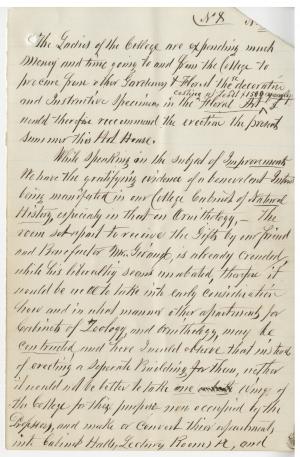 (No 8
The Ladies of the College are expending much
Money and time going to and from the College to
procure from other Gardens & Florist the decorative
costing at least $1500 annually
and Instructive Specimens in the Floral Art & I
would therefore recommend the erection the present
summer this Hot House.
While speaking on the subject of Improvements
We have the gratifying evidence of a benevolent Interest
being manifested in our College Cabinet of Natural
History especially in that on Ornithology, — The
room set apart to receive the Gifts by our friend
and Benefactor Mr. Giraud, is already crowded,
while his liberality seems unabated, therefore it
would be well to take into early consideration
how and in what manner other apartments, for
Cabinets of Zoology, and Ornithology, may be
constructed, and here I would observe that instead
of erecting a Seperate Building for them, wether
it would not be better to take one wing of
the College for this purpose now occupied by the
Professors, and make or convert their apartments
into Cabinet Halls, Lecture Rooms &c, and